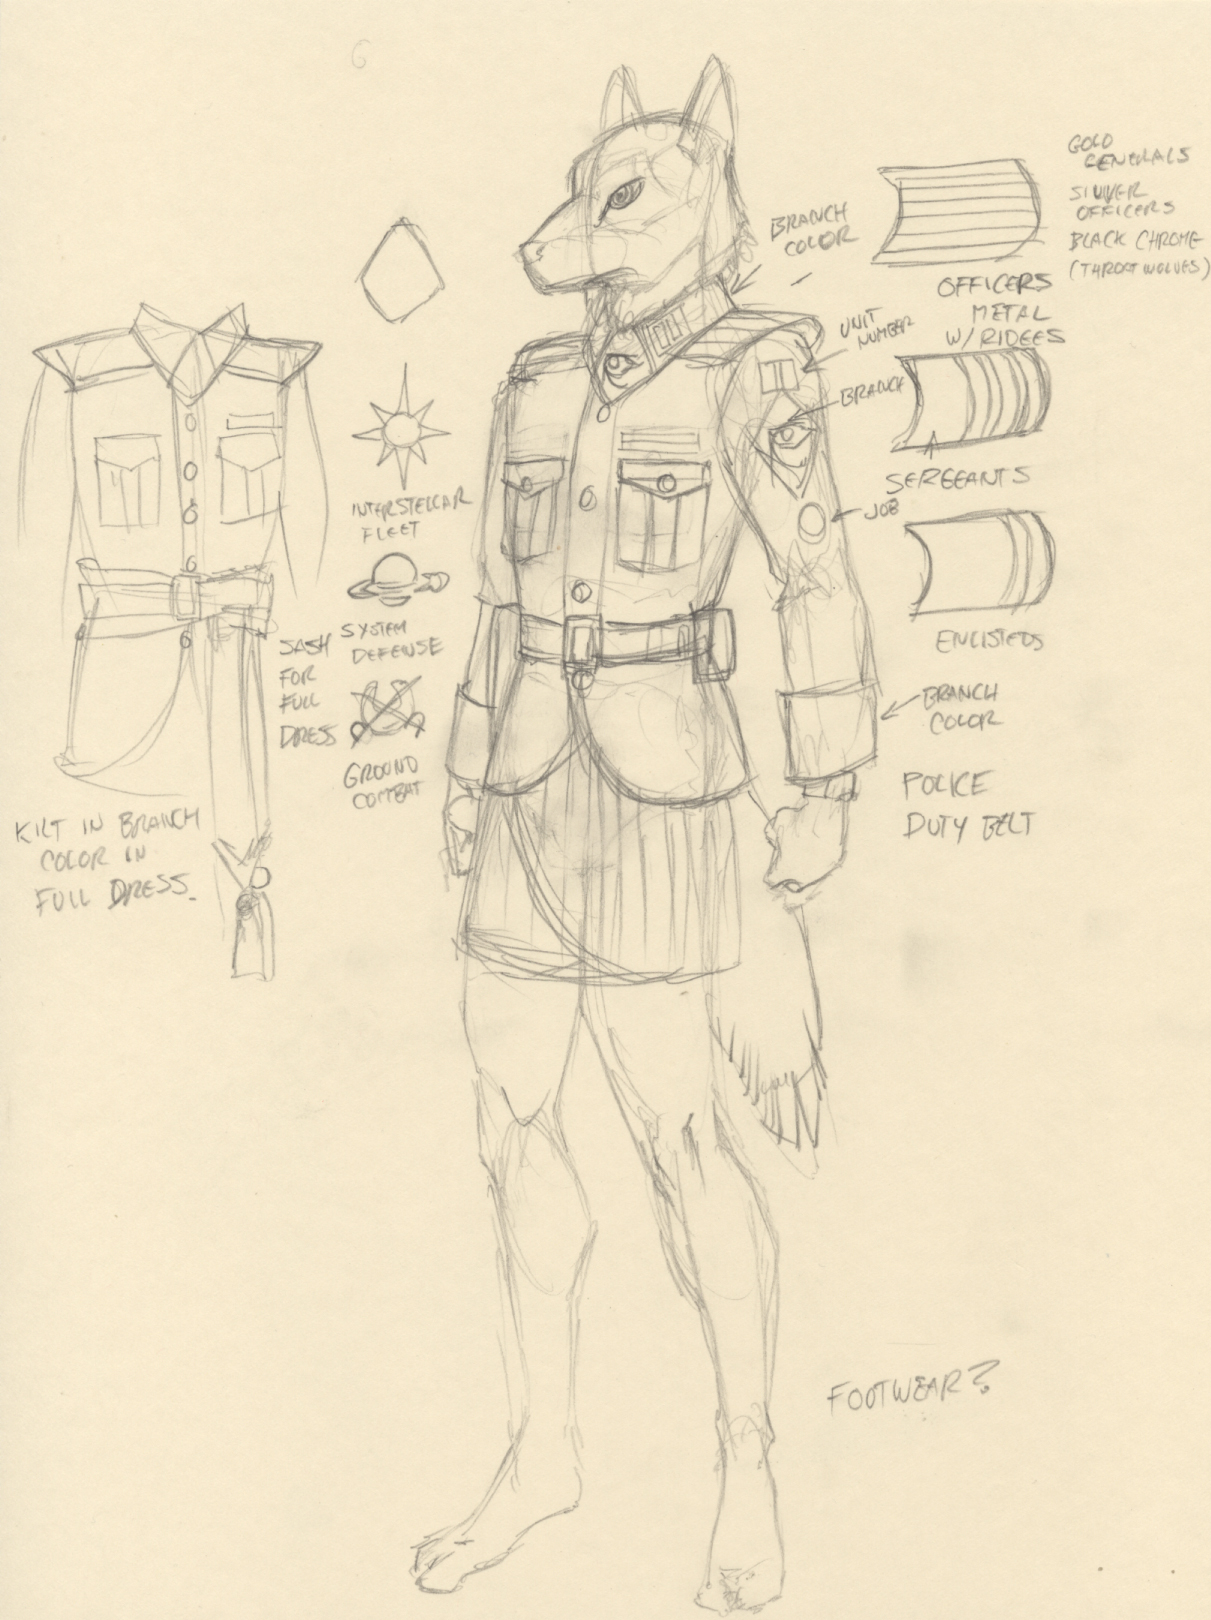 GOLD
GENERALS
SILVER
OFFICERS
BLACK CHROME
(THROATWOLVES)
BRANCH
COLOR
OFFICERS
METAL
W/ RIDGES
UNIT
NUMBER
BRANCH
SERGEANTS
JOB
INTERSTELLAR
FLEET
ENLISTEDS
SYSTEM
DEFENSE
SASH
FOR
FULL
DRESS
BRANCH
COLOR
GROUND
COMBAT
POLICE
DUTY BELT
KILT IN BRANCH
COLOR IN
FULL DRESS.
FOOTWEAR?